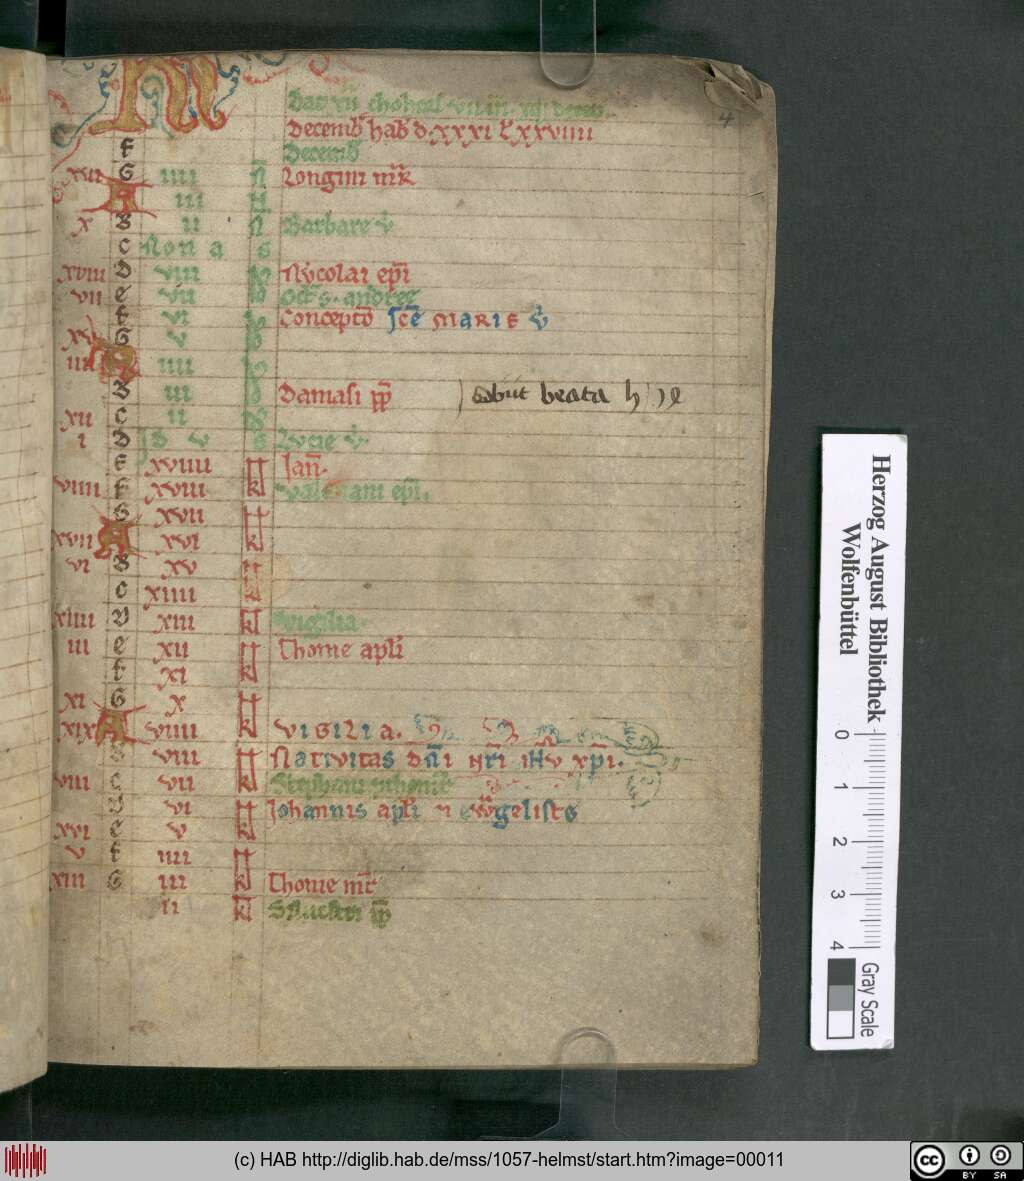 4
Decemb hab d. xxxi l xxviiii
Decemb
F
xviii G iiii N Longini mr
A iii N
x B ii N Barbare v
C Nonas
xviii D viii Nycolai epi
vii e vii Oct s. andree
F vi Concepto sce marie v
xv G v
iiii A iiii
B iii Damasi pp
xii C ii
i D Id v s Lucie v
E xviiii kl Jan.
viiii F xviii kl Valeriani epi.
G xvii kl
xvii A xvi kl
vi B xv kl
C xiiii kl
xiiii D xiii kl Vigilia
iii e xii kl Thome apli
F xi kl
xi G x kl
xix A viiii kl Vigilia.
B viii kl Nativitas dni nri ihu xpi.
viii C vii kl Stephani
D vi kl Johannis apli ewgeliste
xvi e v kl
v F iiii kl
xiii G iii kl Thome mr
ii kl Silvestri pp
Herzog August Bibliothek
Wolfenbüttel
0 1 2 3 4
Gray Scale
(c) HAB http://diglib.hab.de/mss/1057-helmst/start.htm?image=00011
cc BY SA